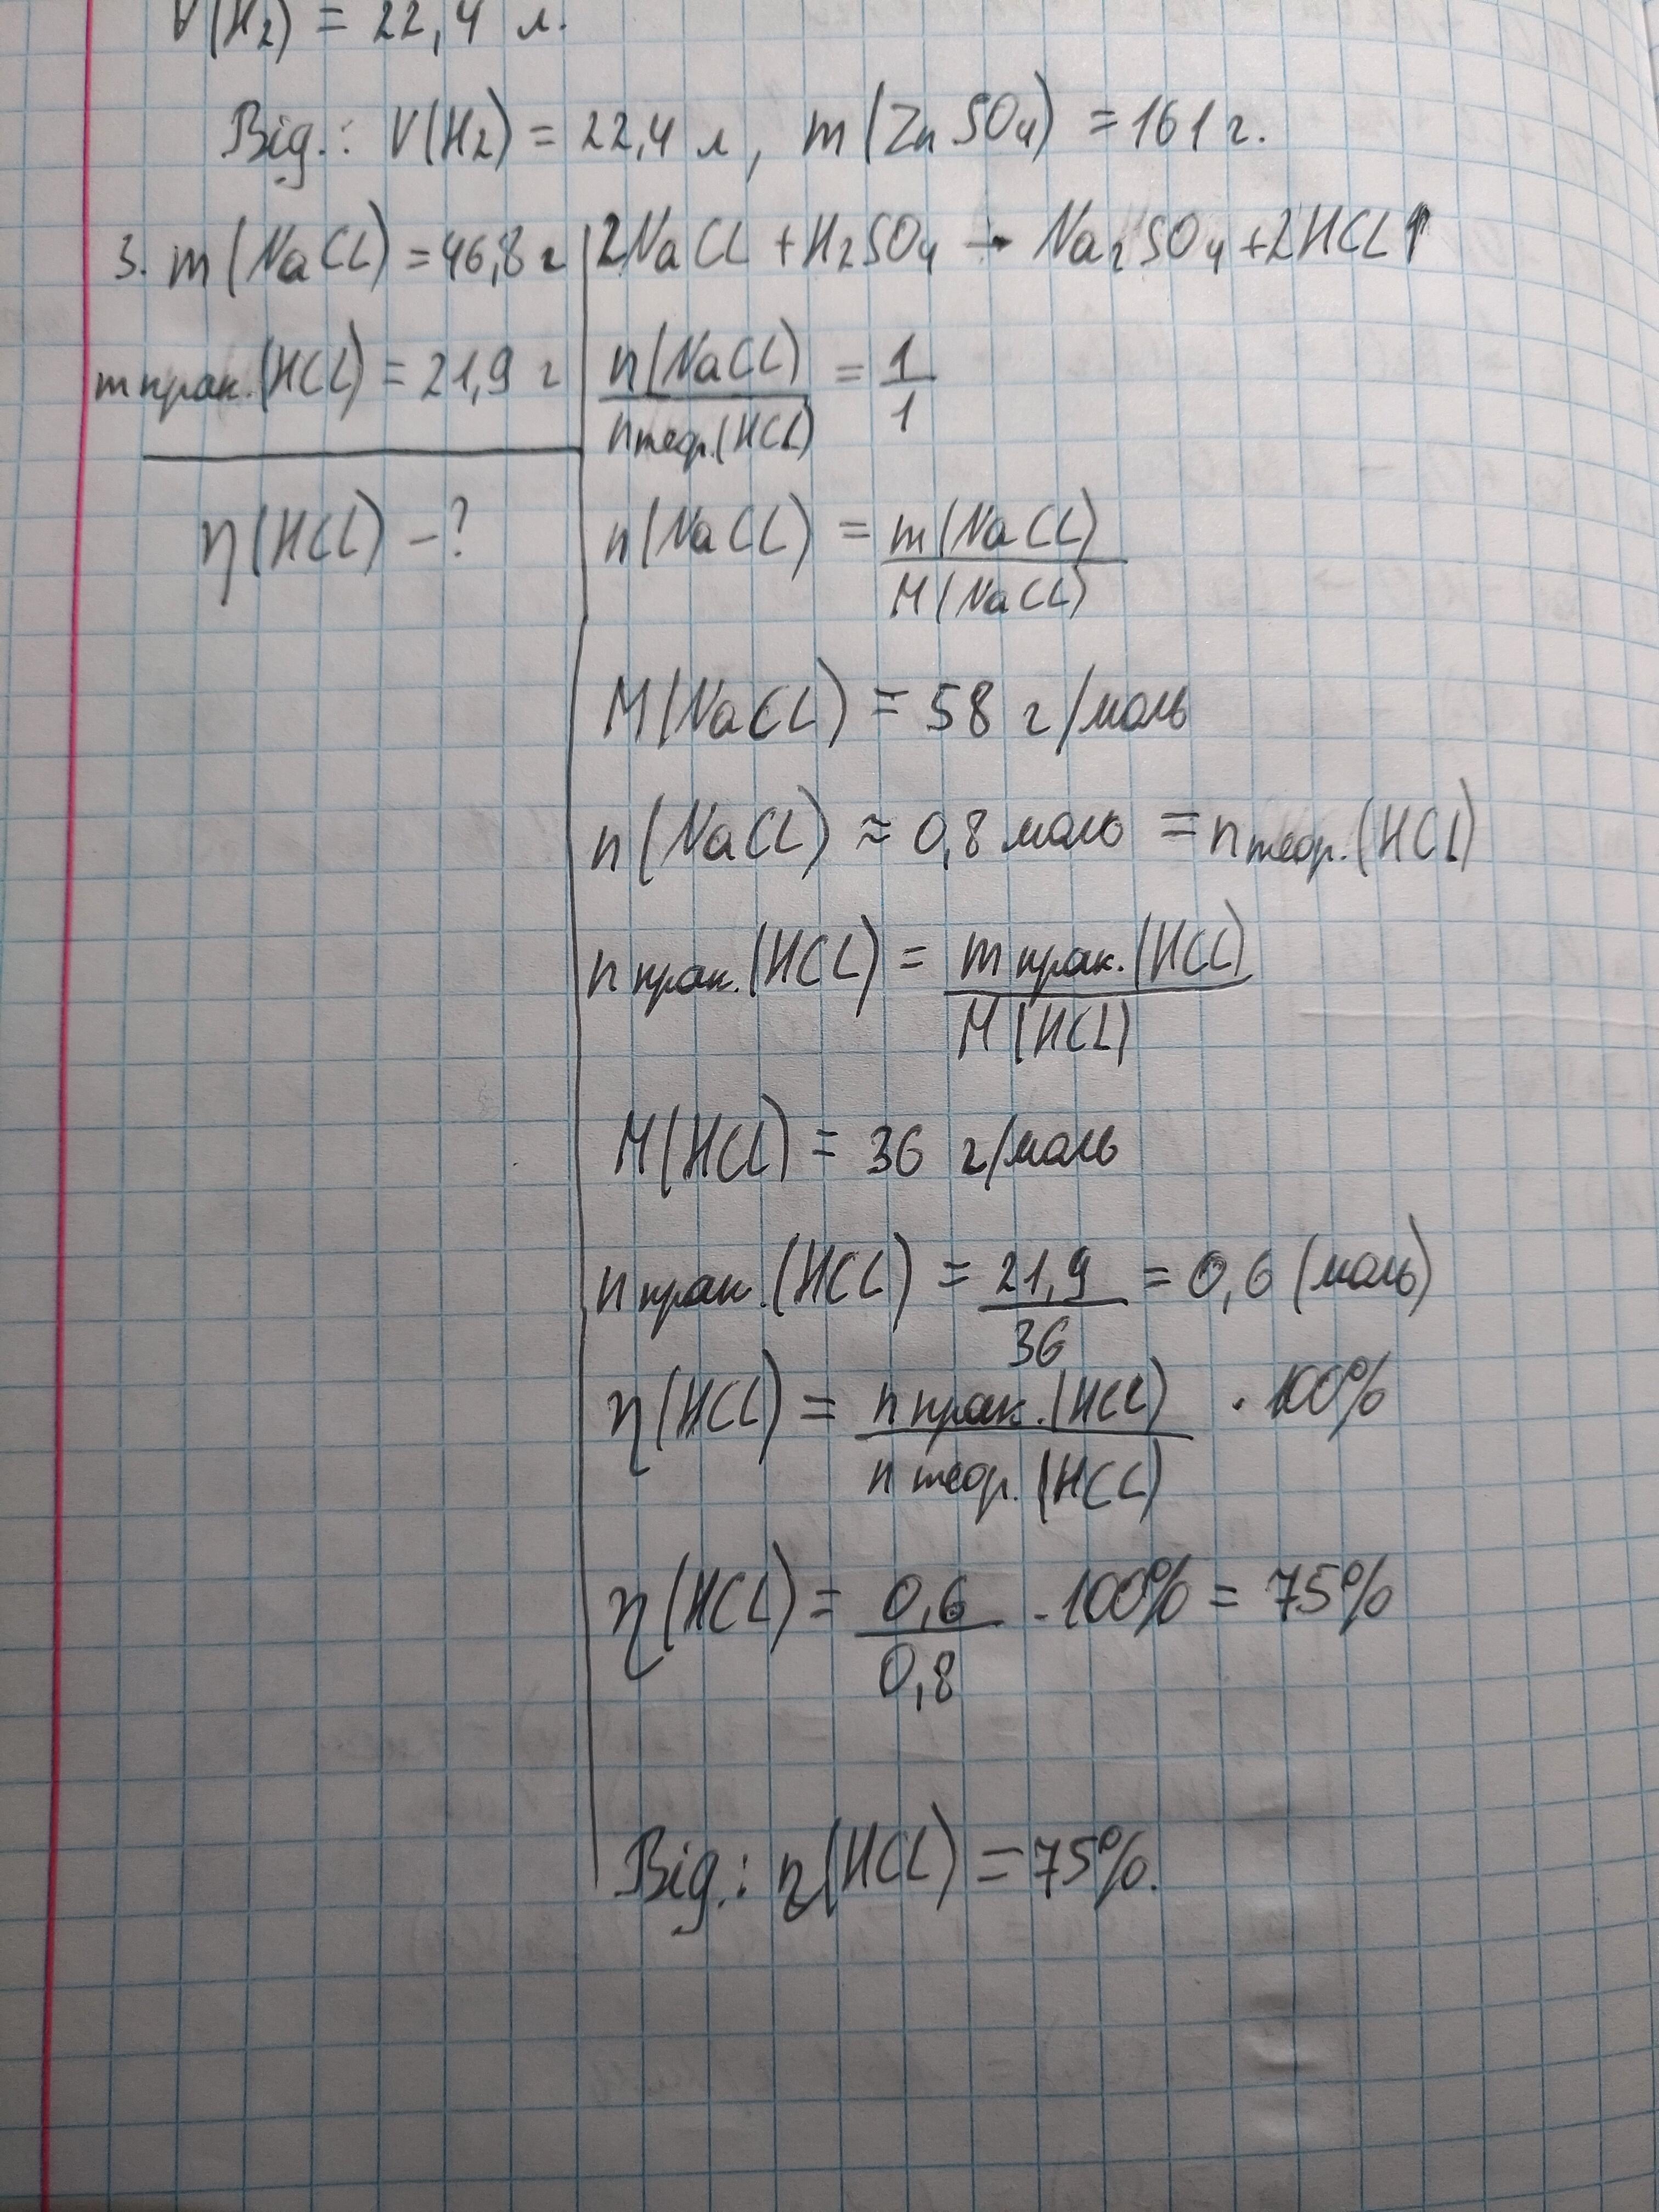 V(H₂) = 22,4 л.
Від.: V(H₂) = 22,4 л, m(ZnSO₄) = 161 г.
3. m(NaCl) = 46,8 г | 2NaCl + H₂SO₄ → Na₂SO₄ + 2HCl↑
mпрак.(HCl) = 21,9 г | n(NaCl)/nтеор.(HCl) = 1/1
η(HCl) - ? | n(NaCl) = m(NaCl)/M(NaCl)
M(NaCl) = 58 г/моль
n(NaCl) ≈ 0,8 моль = nтеор.(HCl)
nпрак.(HCl) = mпрак.(HCl)/M(HCl)
M(HCl) = 36 г/моль
nпрак.(HCl) = 21,9/36 = 0,6 (моль)
η(HCl) = nпрак.(HCl)/nтеор.(HCl) · 100%
η(HCl) = 0,6/0,8 · 100% = 75%
Від.: η(HCl) = 75%.